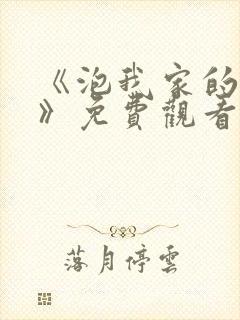 《泡我家的
》免費觀看
落月停雲